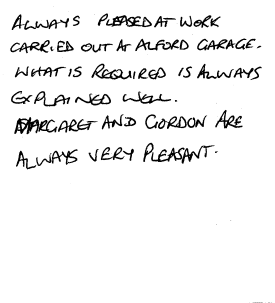 ALWAYS PLEASED AT WORK
CARRIED OUT AT ALFORD GARAGE.
WHAT IS REQUIRED IS ALWAYS
EXPLAINED WELL.
MARGARET AND GORDON ARE
ALWAYS VERY PLEASANT.